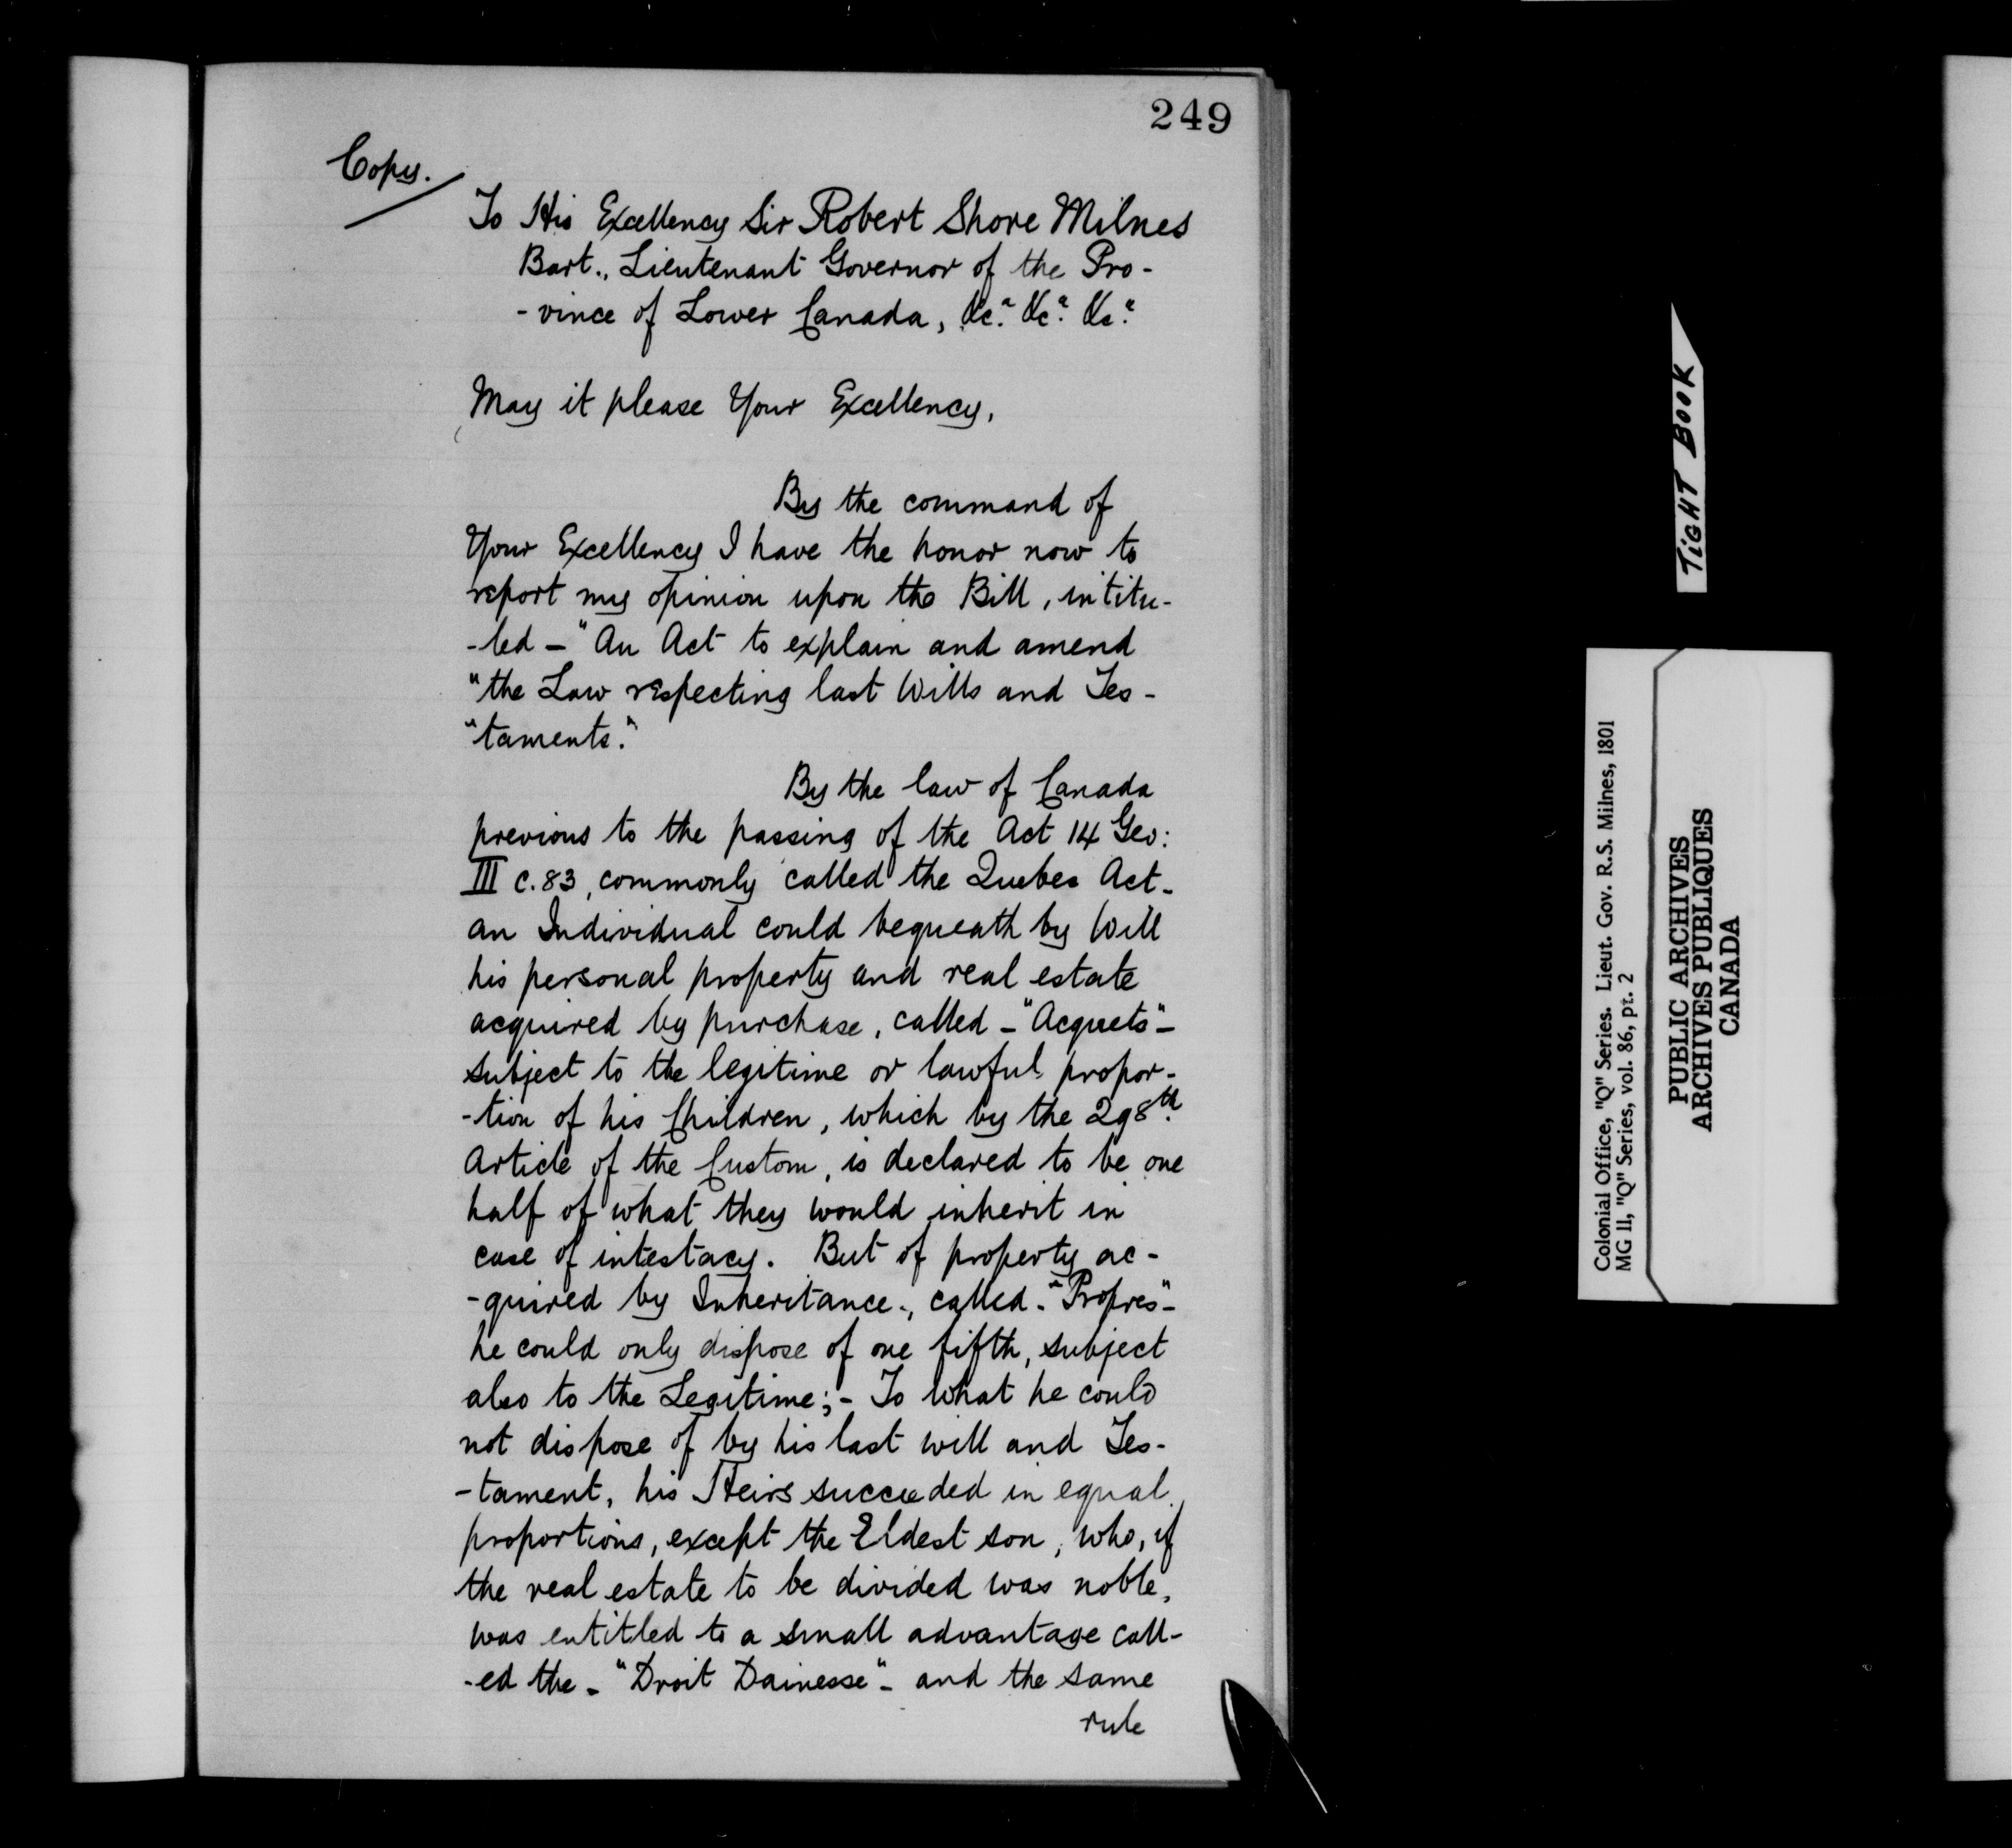 249
Copy.
To His Excellency Sir Robert Shore Milnes
Bart., Lieutenant Governor of the Pro-
-vince of Lower Canada, &c.a &c.a &c.a
May it please Your Excellency,
By the command of
Your Excellency I have the honor now to
report my opinion upon the Bill, intitu-
-led - "An Act to explain and amend
"the Law respecting last Wills and Tes-
"taments."
By the law of Canada
previous to the passing of the Act 14 Geo:
III c. 83, commonly called the Quebec Act -
an Individual could bequeath by Will
his personal property and real estate
acquired by purchase, called - "Acquets" -
subject to the legitime or lawful propor-
-tion of his Children, which by the 298th.
Article of the Custom, is declared to be one
half of what they would inherit in
case of intestacy. But of property ac-
-quired by Inheritance., called - "Propres" -
he could only dispose of one fifth, subject
also to the Legitime; - To what he could
not dispose of by his last will and Tes-
-tament, his Heirs succeeded in equal
proportions, except the Eldest son, who, if
the real estate to be divided was noble,
was entitled to a small advantage call-
-ed the - "Droit Dainesse" - and the same
rule
TIGHT BOOK
Colonial Office, "Q" Series. Lieut. Gov. R.S. Milnes, 1801
MG 11, "Q" Series, vol. 86, pt. 2
PUBLIC ARCHIVES
ARCHIVES PUBLIQUES
CANADA